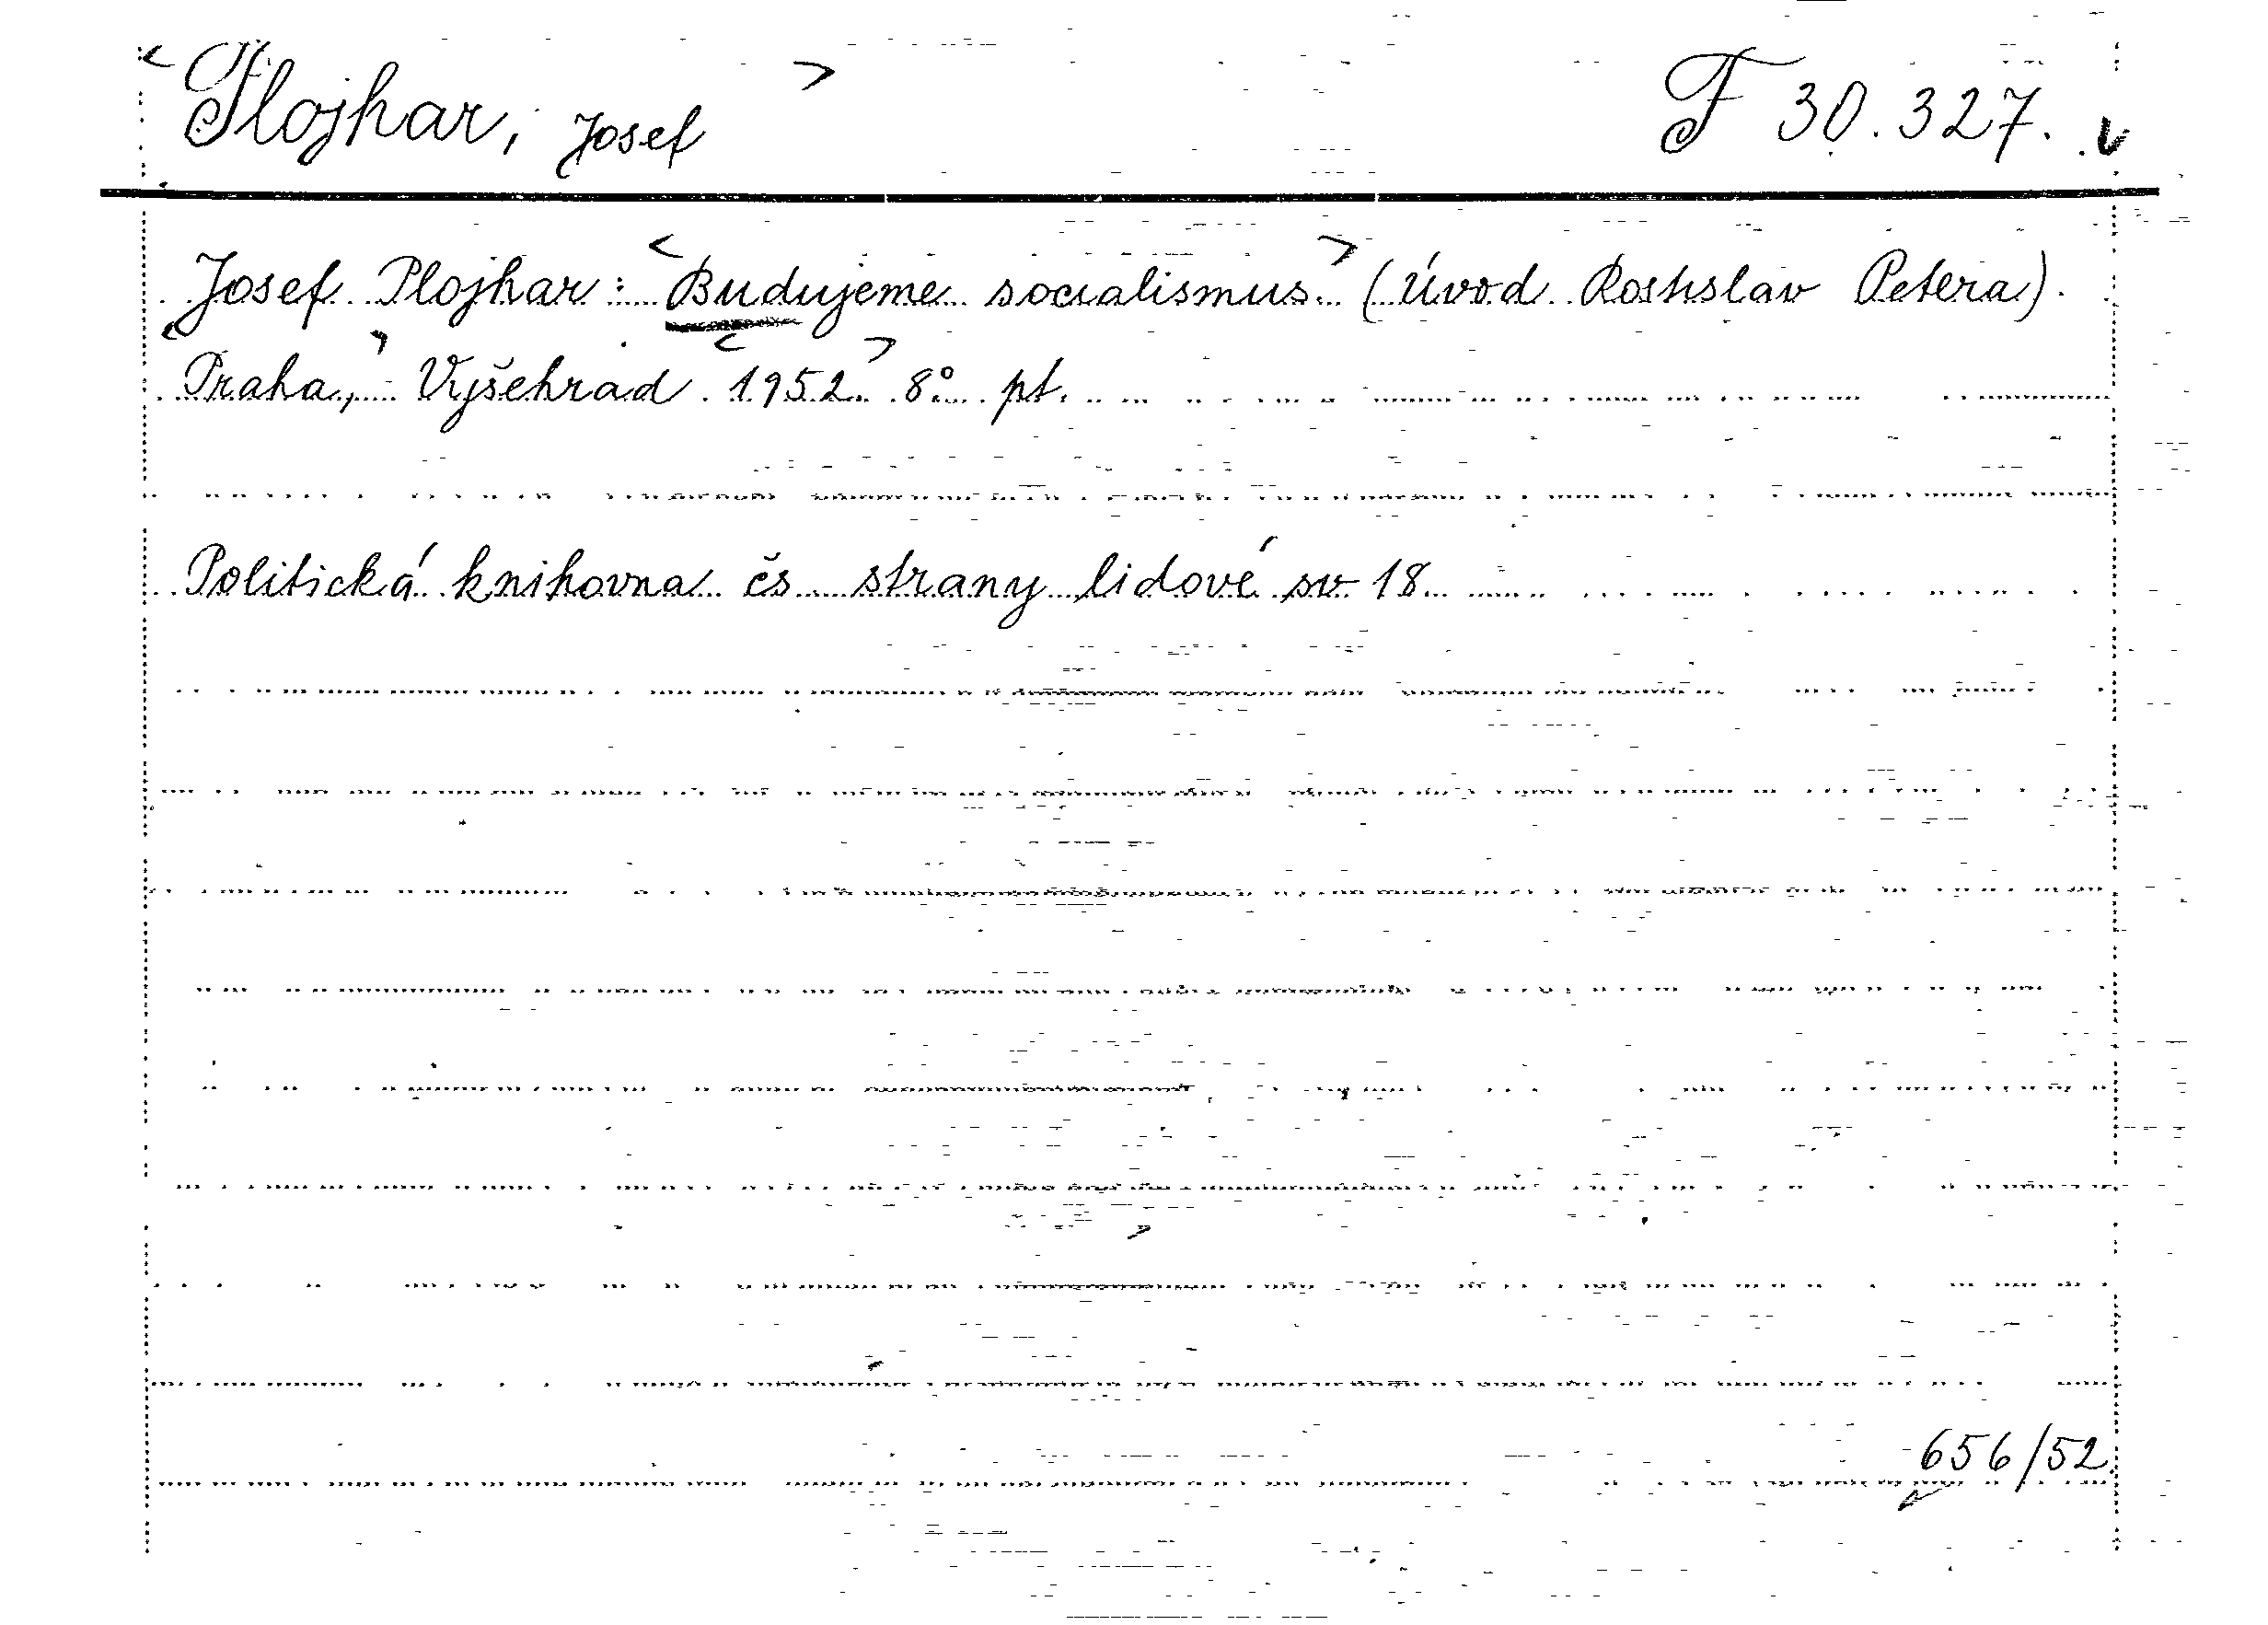 <Plojhar, Josef> F 30.327. v
Josef Plojhar: <Budujeme socialismus> (Úvod Rostislav Petera).
<Praha,> Vyšehrad <1952> 8° pt.
Politická knihovna čs strany lidové sv 18
656/52